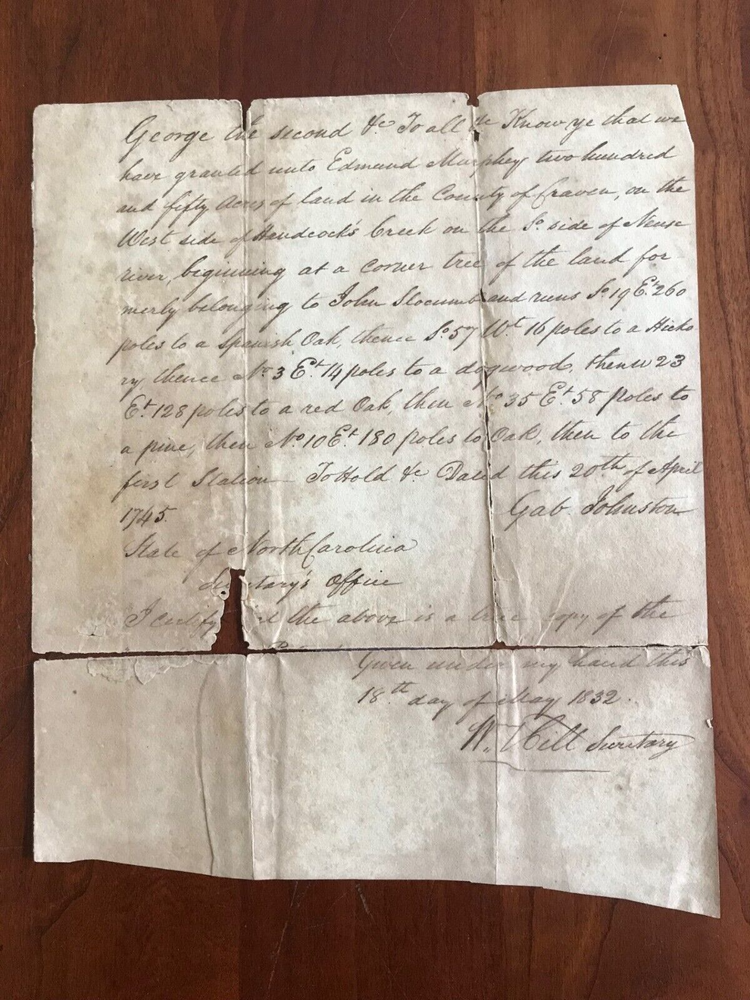 George the second &c To all &c Know ye that we
have granted unto Edmund Murphey two hundred
and fifty Acres of land in the County of Craven, on the
West side of Handcock's Creek on the So. side of Neuse
river, beginning at a corner tree of the land for
merly belonging to John Slocumb and runs So. 19 Et. 260
poles to a Spanish Oak, thence So. 57 Wt. 16 poles to a Hicko
ry thence No. 3 Et. 14 poles to a dogwood, then 23
Et. 128 poles to a red Oak, then No. 35 Et. 58 poles to
a pine, then No. 10 Et. 180 poles to Oak, then to the
first Station To Hold &c Dated this 20th of April
1745. Gab Johnston
State of North Carolina
Secretary's Office
I certify the above is a true copy of the
Given under my hand this
18th day of May 1832.
W. Hill Secretary